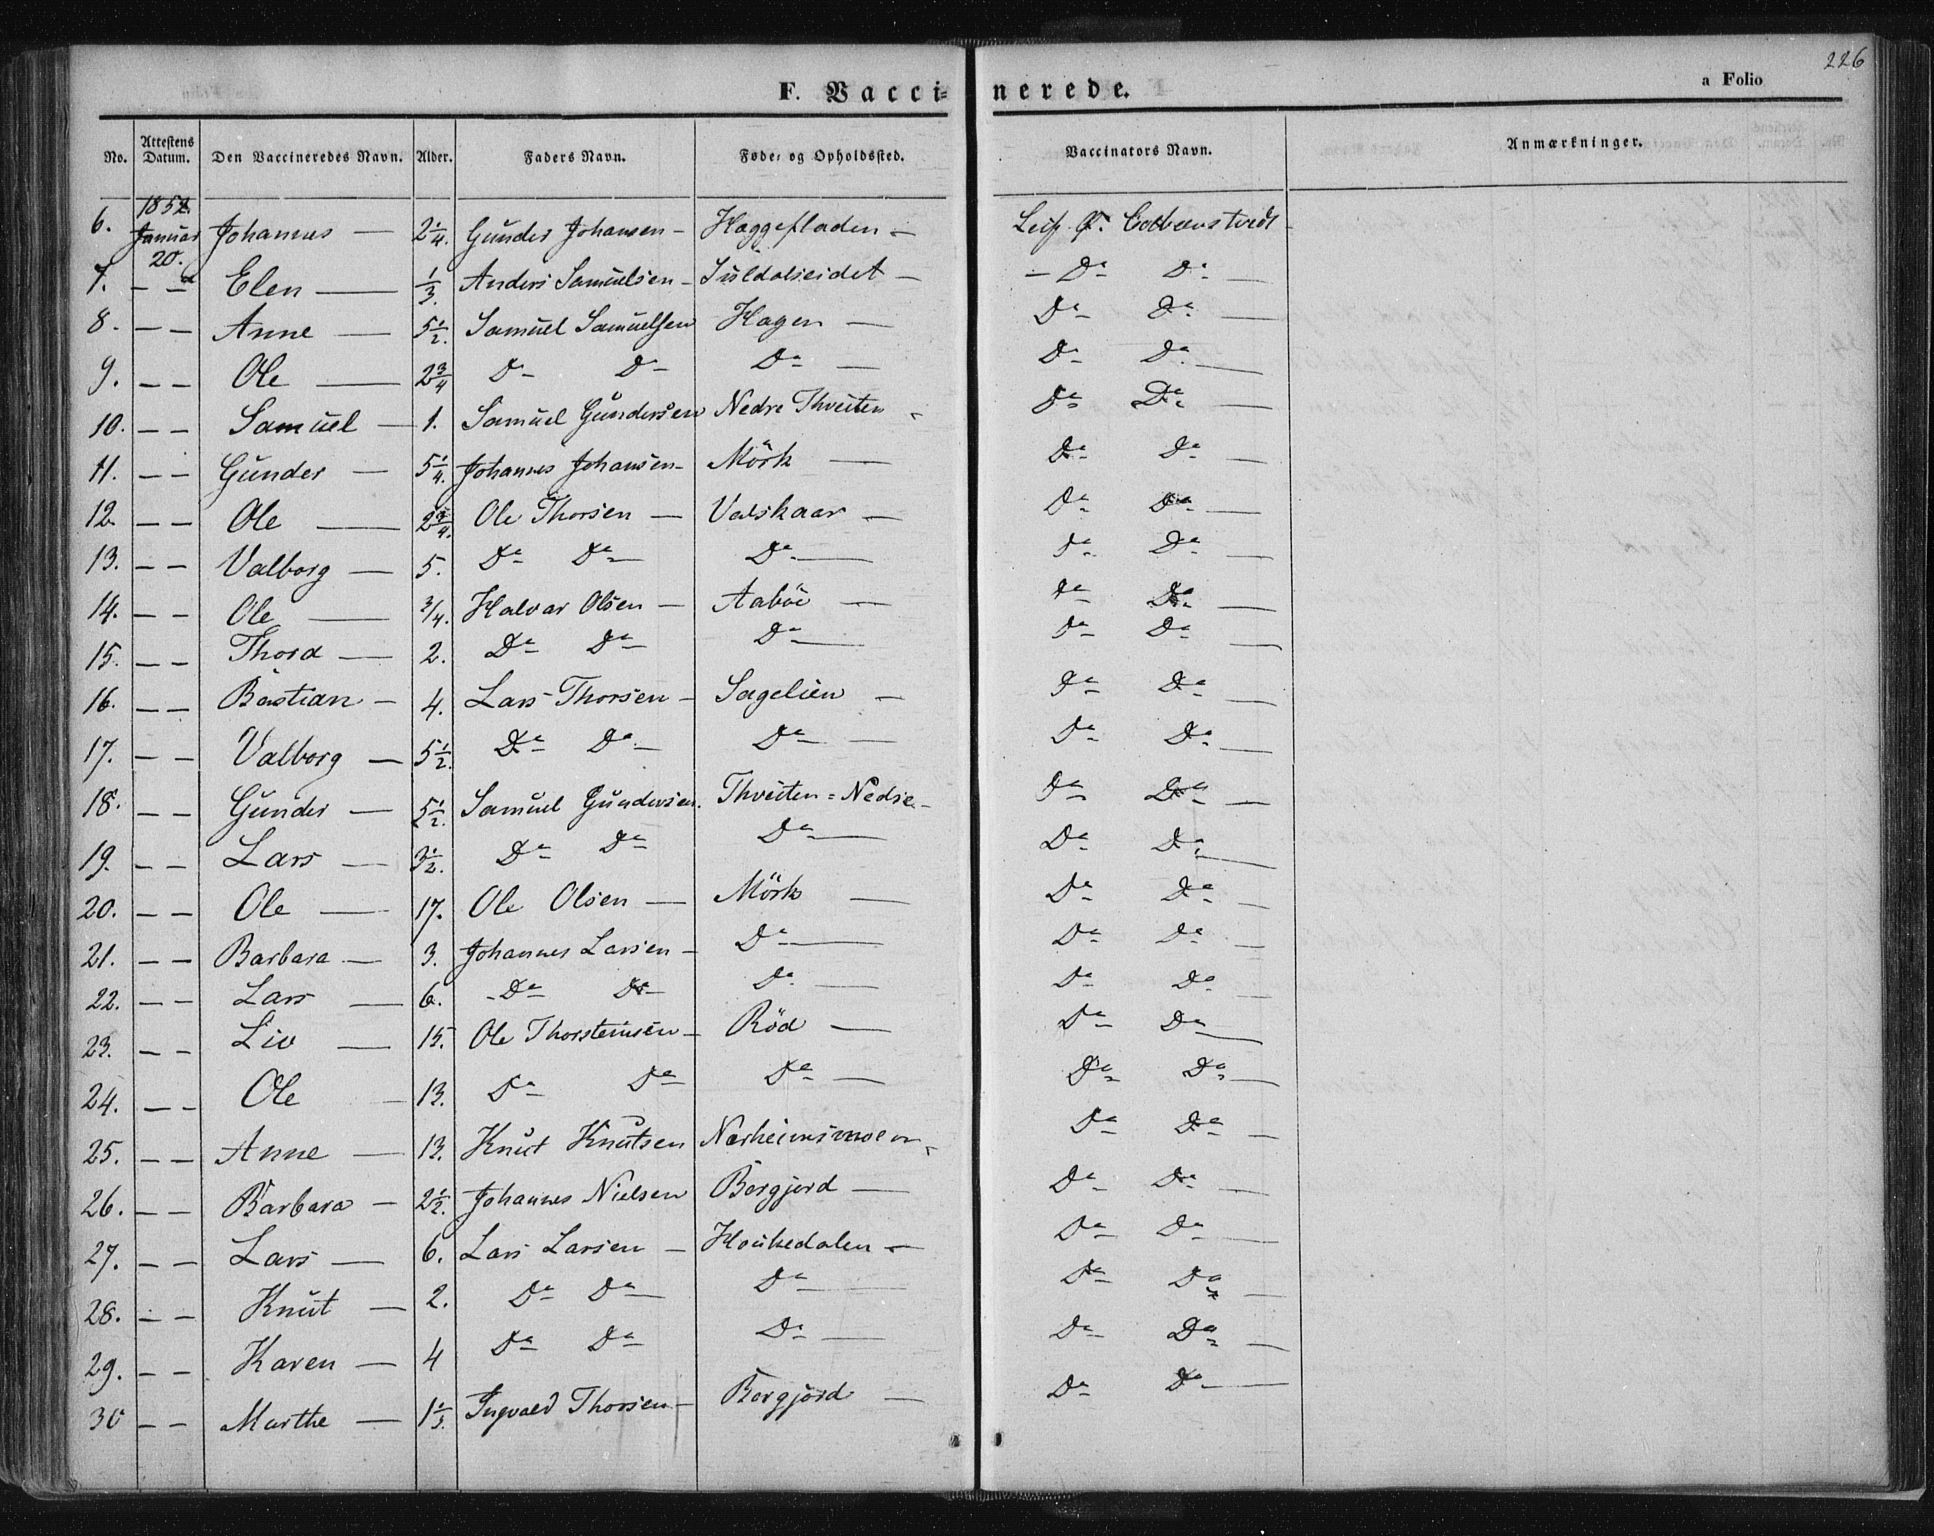 226
F. Vaccinerede.
a Folio
No. Attestens Datum. Den Vaccineredes Navn. Alder. Faders Navn. Føde- og Opholdssted. Vaccinators Navn. Anmærkninger.
1852.
6. Januar 20. Johannes — 2 1/4. Gunder Johansen — Haggefladen —
7. — — Elen — 1/3. Anders Samuelsen — Suldalseidet — — Do Do —
8. — — Anne — 5 1/2. Samuel Samuelsen Hagen — Do Do —
9. — — Ole — 2 3/4 Do Do Do — Do Do —
10. — — Samuel — 1. Samuel Gundersen Nedre Thveiten — Do Do —
11. — — Gunder — 5 1/4. Johannes Johansen — Mörk — Do Do —
12 — — Ole — 2 3/4. Ole Thorsen — Valskaar — Do Do —
13. — — Valborg — 5. Do Do — Do — Do Do —
14. — — Ole — 3/4. Halvar Olsen — Aaböe — Do Do —
15. — — Thord — 2. Do Do Do — Do Do —
16. — — Bastian — 4. Lars Thorsen — Sagelien — Do Do —
17. — — Valborg — 5 1/2. Do Do — Do — Do Do —
18. — — Gunder — 5 1/2. Samuel Gundersen. Thveiten = Nedre — Do Do —
19. — — Lars — 3 1/2. Do Do Do — Do Do —
20. — — Ole — 17. Ole Olsen — Mörk — Do Do —
21. — — Barbara — 3. Johannes Larsen — Do — Do Do —
22. — — Lars — 6. — Do Do Do — Do Do —
23. — — Liv — 15. Ole Thorsteinsen — Röd — Do Do —
24. — — Ole — 13. Do Do Do — Do Do —
25. — — Anne — 13. Knut Knutsen Nærheimsmoen — Do Do —
26. — — Barbara — 2 1/2. Johannes Nielsen Bergjord — Do Do —
27. — — Lars — 6. Lars Larsen — Houkedalen — Do Do —
28. — — Knut — 2. Do Do — Do — Do Do —
29. — — Karen — 4 Do Do Do — Do Do —
30 — — Marthe — Ingvald Thorsen — Bergjord — Do Do —